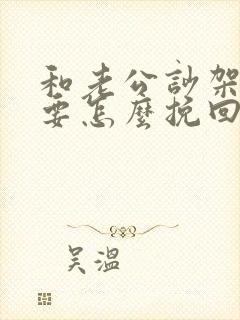 和老公訃架
要怎麼挽回
吴溫